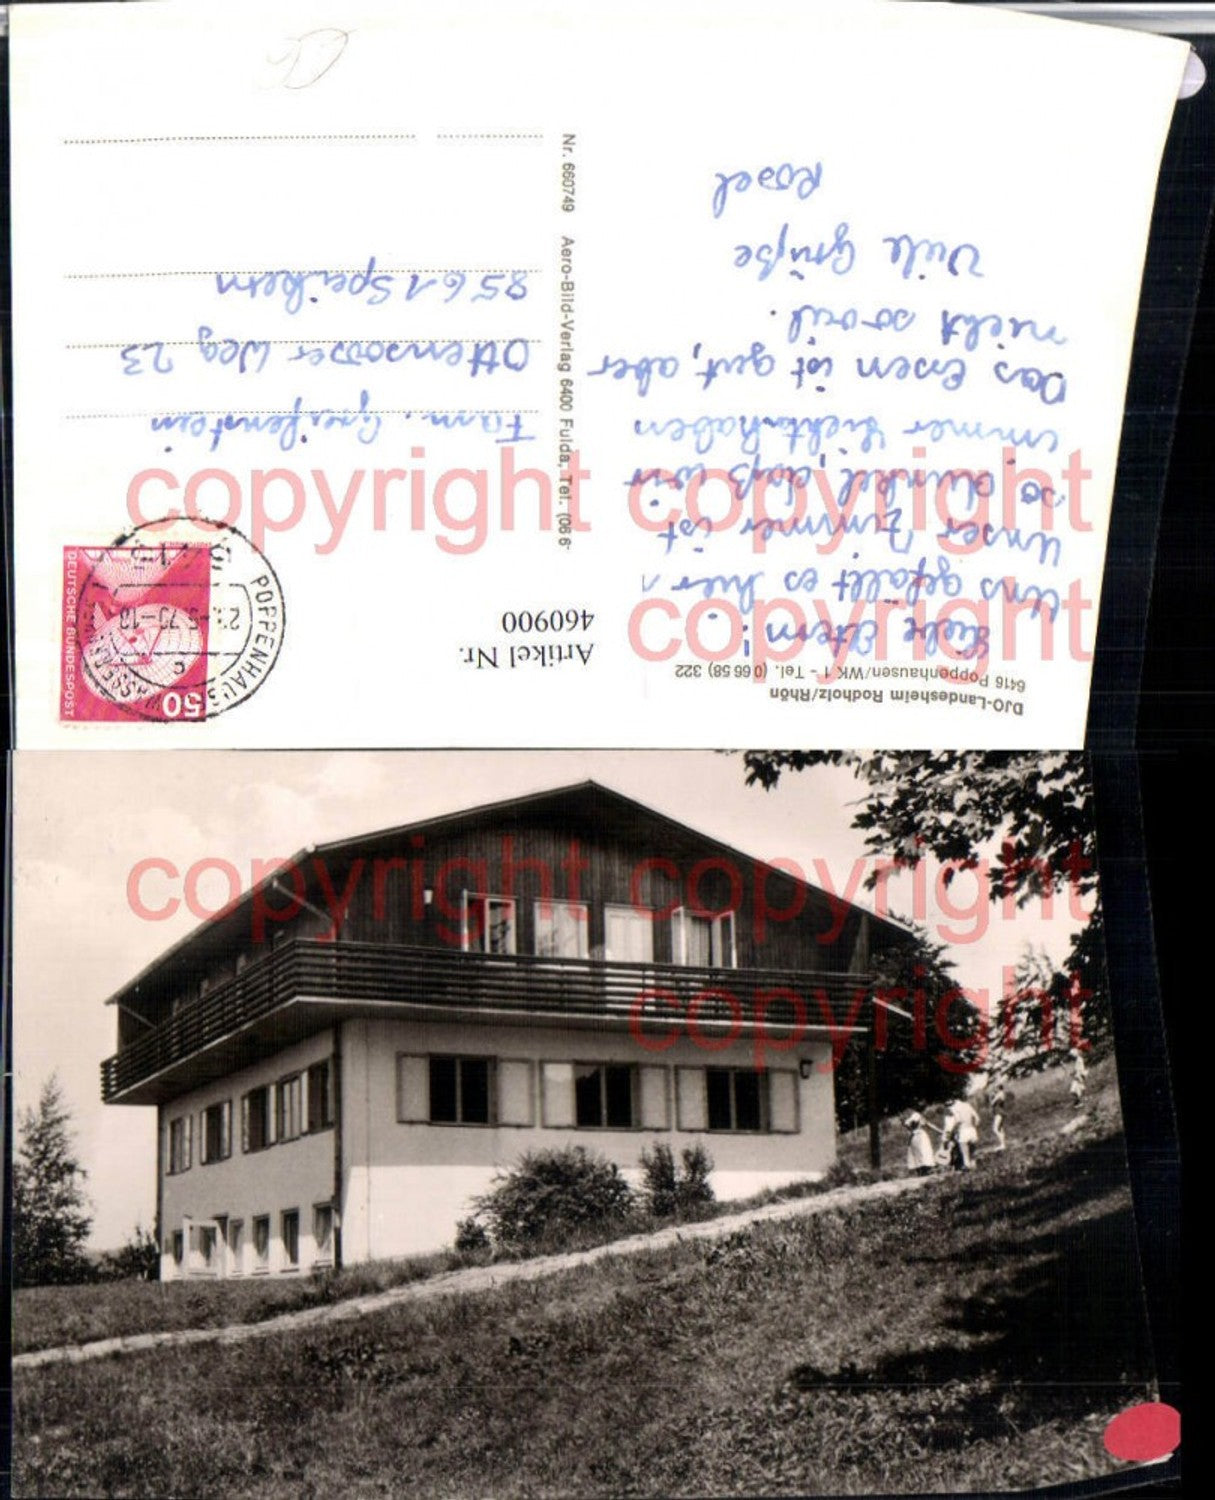 DJO-Landesheim Rodholz/Rhön
6416 Poppenhausen/WK 1 - Tel. (0 66 58) 322
Liebe Eltern!
Uns gefällt es hier.
Unser Zimmer ist
so dunkel, daß wir
immer Licht haben
Das Essen ist gut, aber
nicht soviel.
Viele Grüße
Rosel
Nr. 660749 Aero-Bild-Verlag 6400 Fulda, Tel. (066
Artikel Nr.
460900
50
DEUTSCHE BUNDESPOST
POPPENHAUSEN
WASSERKUPPE
c
Fam. Greifenstein
Ottensooser Weg 23
8561 Speikern
copyright copyright
copyright
copyright copyright
copyright